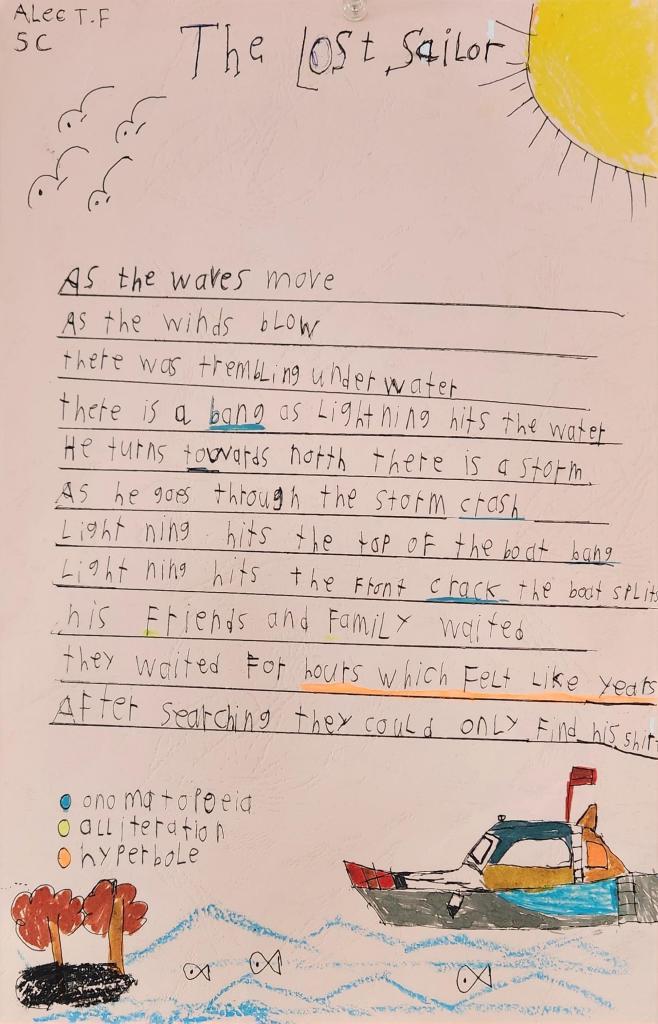 Alec T.F
5C
The Lost Sailor
As the waves move
As the winds blow
there was trembling under water
there is a bang as Lightning hits the water
He turns towards north there is a storm.
As he goes through the storm crash
Lightning hits the top of the boat bang
Lightning hits the front crack the boat splits
his Friends and Family waited
they waited For hours which Felt Like years
After searching they could only Find his shirt
onomatopoeia
alliteration
hyperbole